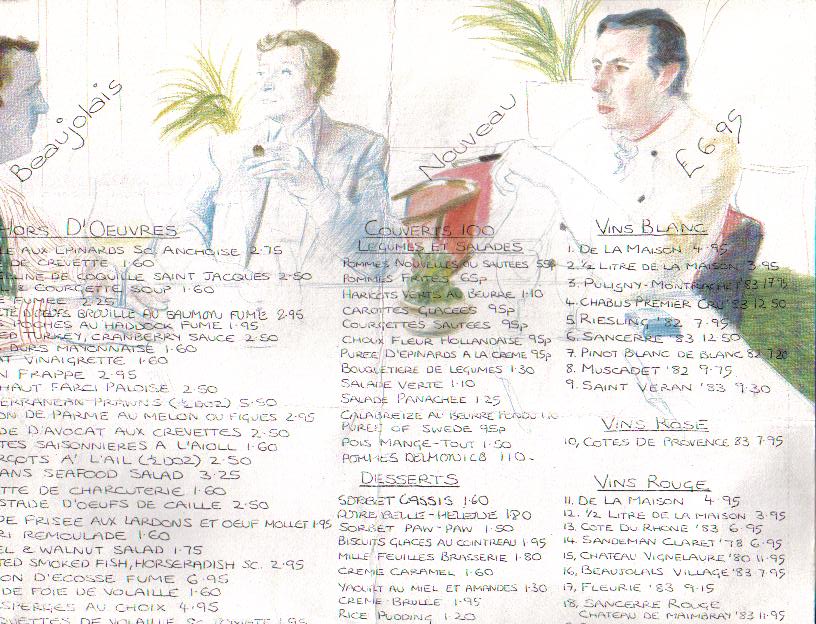 Beaujolais
Nouveau
£6.95
HORS D'OEUVRES
AUX EPINARDS SC. ANCHOISE 2.75
DE CREVETTE 1.60
DE COQUILLE SAINT JACQUES 2.50
& COURGETTE SOUP 1.60
FUMEE 2.25
BROUILLE AU SAUMON FUMÉ 2.95
POCHES AU HADDOCK FUME 1.95
TURKEY, CRANBERRY SAUCE 2.50
MAYONNAISE 1.60
VINAIGRETTE 1.60
FRAPPE 2.95
FARCI PALOISE 2.50
PRAWNS (½DOZ) 5.50
DE PARME AU MELON OU FIGUES 2.95
D'AVOCAT AUX CREVETTES 2.50
SAISONNIERES A L'AIOLI 1.60
A' L'AIL (½DOZ) 2.50
SEAFOOD SALAD 3.25
DE CHARCUTERIE 1.60
D'OEUFS DE CAILLE 2.50
DE FRISEE AUX LARDONS ET OEUF MOLLET 1.95
REMOULADE 1.60
& WALNUT SALAD 1.75
SMOKED FISH, HORSERADISH SC. 2.95
D'ECOSSE FUME 6.95
DE FOIE DE VOLAILLE 1.60
AU CHOIX 4.95
DE VOLAILLE
COUVERTS 100
LEGUMES ET SALADES
POMMES NOUVELLES OU SAUTEES 55p
POMMES FRITES 65p
HARICOTS VERTS AU BEURRE 1.10
CAROTTES GLACEES 95p
COURGETTES SAUTEES 95p
CHOUX FLEUR HOLLANDAISE 95p
PUREE D'EPINARDS A LA CREME 95p
BOUQUETIERE DE LEGUMES 1.30
SALADE VERTE 1.10
SALADE PANACHEE 1.25
AU BEURRE FONDU
PUREE OF SWEDE 95p
POIS MANGE-TOUT 1.50
POMMES DELMONICO 1.10
DESSERTS
SORBET CASSIS 1.60
POIRE BELLE-HELENE 1.80
SORBET PAW-PAW 1.50
BISCUITS GLACES AU COINTREAU 1.95
MILLE FEUILLES BRASSERIE 1.80
CREME CARAMEL 1.60
YAOURT AU MIEL ET AMANDES 1.30
CREME BRULEE 1.95
RICE PUDDING 1.20
VINS BLANC
1. DE LA MAISON 4.95
2. ½ LITRE DE LA MAISON 3.95
3. PULIGNY-MONTRACHET '83 17.95
4. CHABLIS PREMIER CRU '83 12.50
5. RIESLING '82 7.95
6. SANCERRE '83 12.50
7. PINOT BLANC DE BLANC '82 7.20
8. MUSCADET '82 9.75
9. SAINT VERAN '83 9.30
VINS ROSE
10, COTES DE PROVENCE 83 7.95
VINS ROUGE
11. DE LA MAISON 4.95
12. ½ LITRE DE LA MAISON 3.95
13. COTE DU RHONE '83 6.95
14. SANDEMAN CLARET '78 6.95
15, CHATEAU VIGNELAURE '80 11.95
16, BEAUJOLAIS VILLAGE '83 7.95
17, FLEURIE '83 9.15
18, SANCERRE ROUGE
CHATEAU DE MAIMBRAY '83 11.95